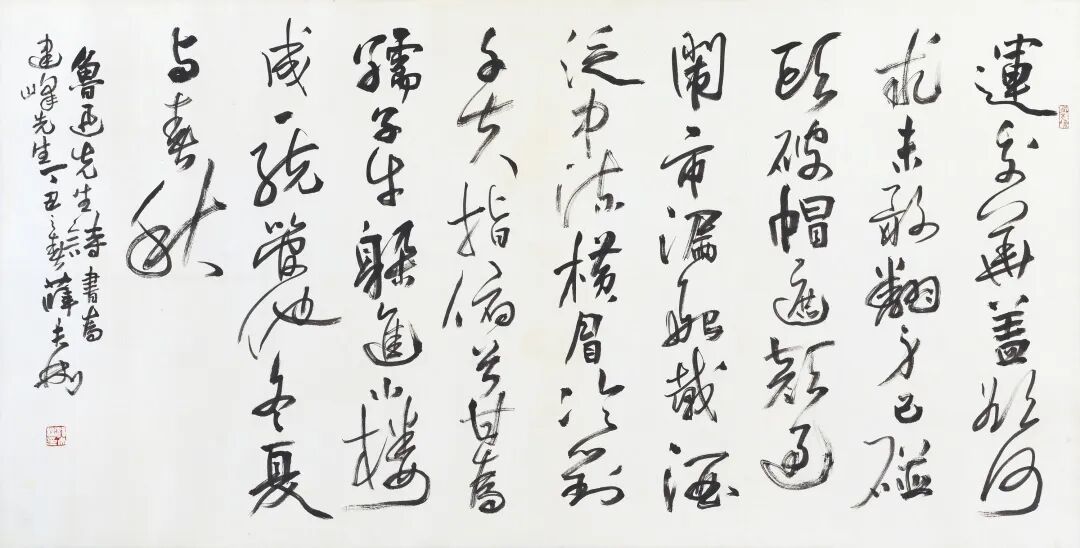 運交華蓋欲何
求未敢翻身已碰
頭破帽遮顏過
鬧市漏船載酒
泛中流橫眉冷對
千夫指俯首甘為
孺子牛躲進小樓
成一統管他冬夏
与春秋
魯迅先生詩書為
建峰先生丁丑之春薛夫彬